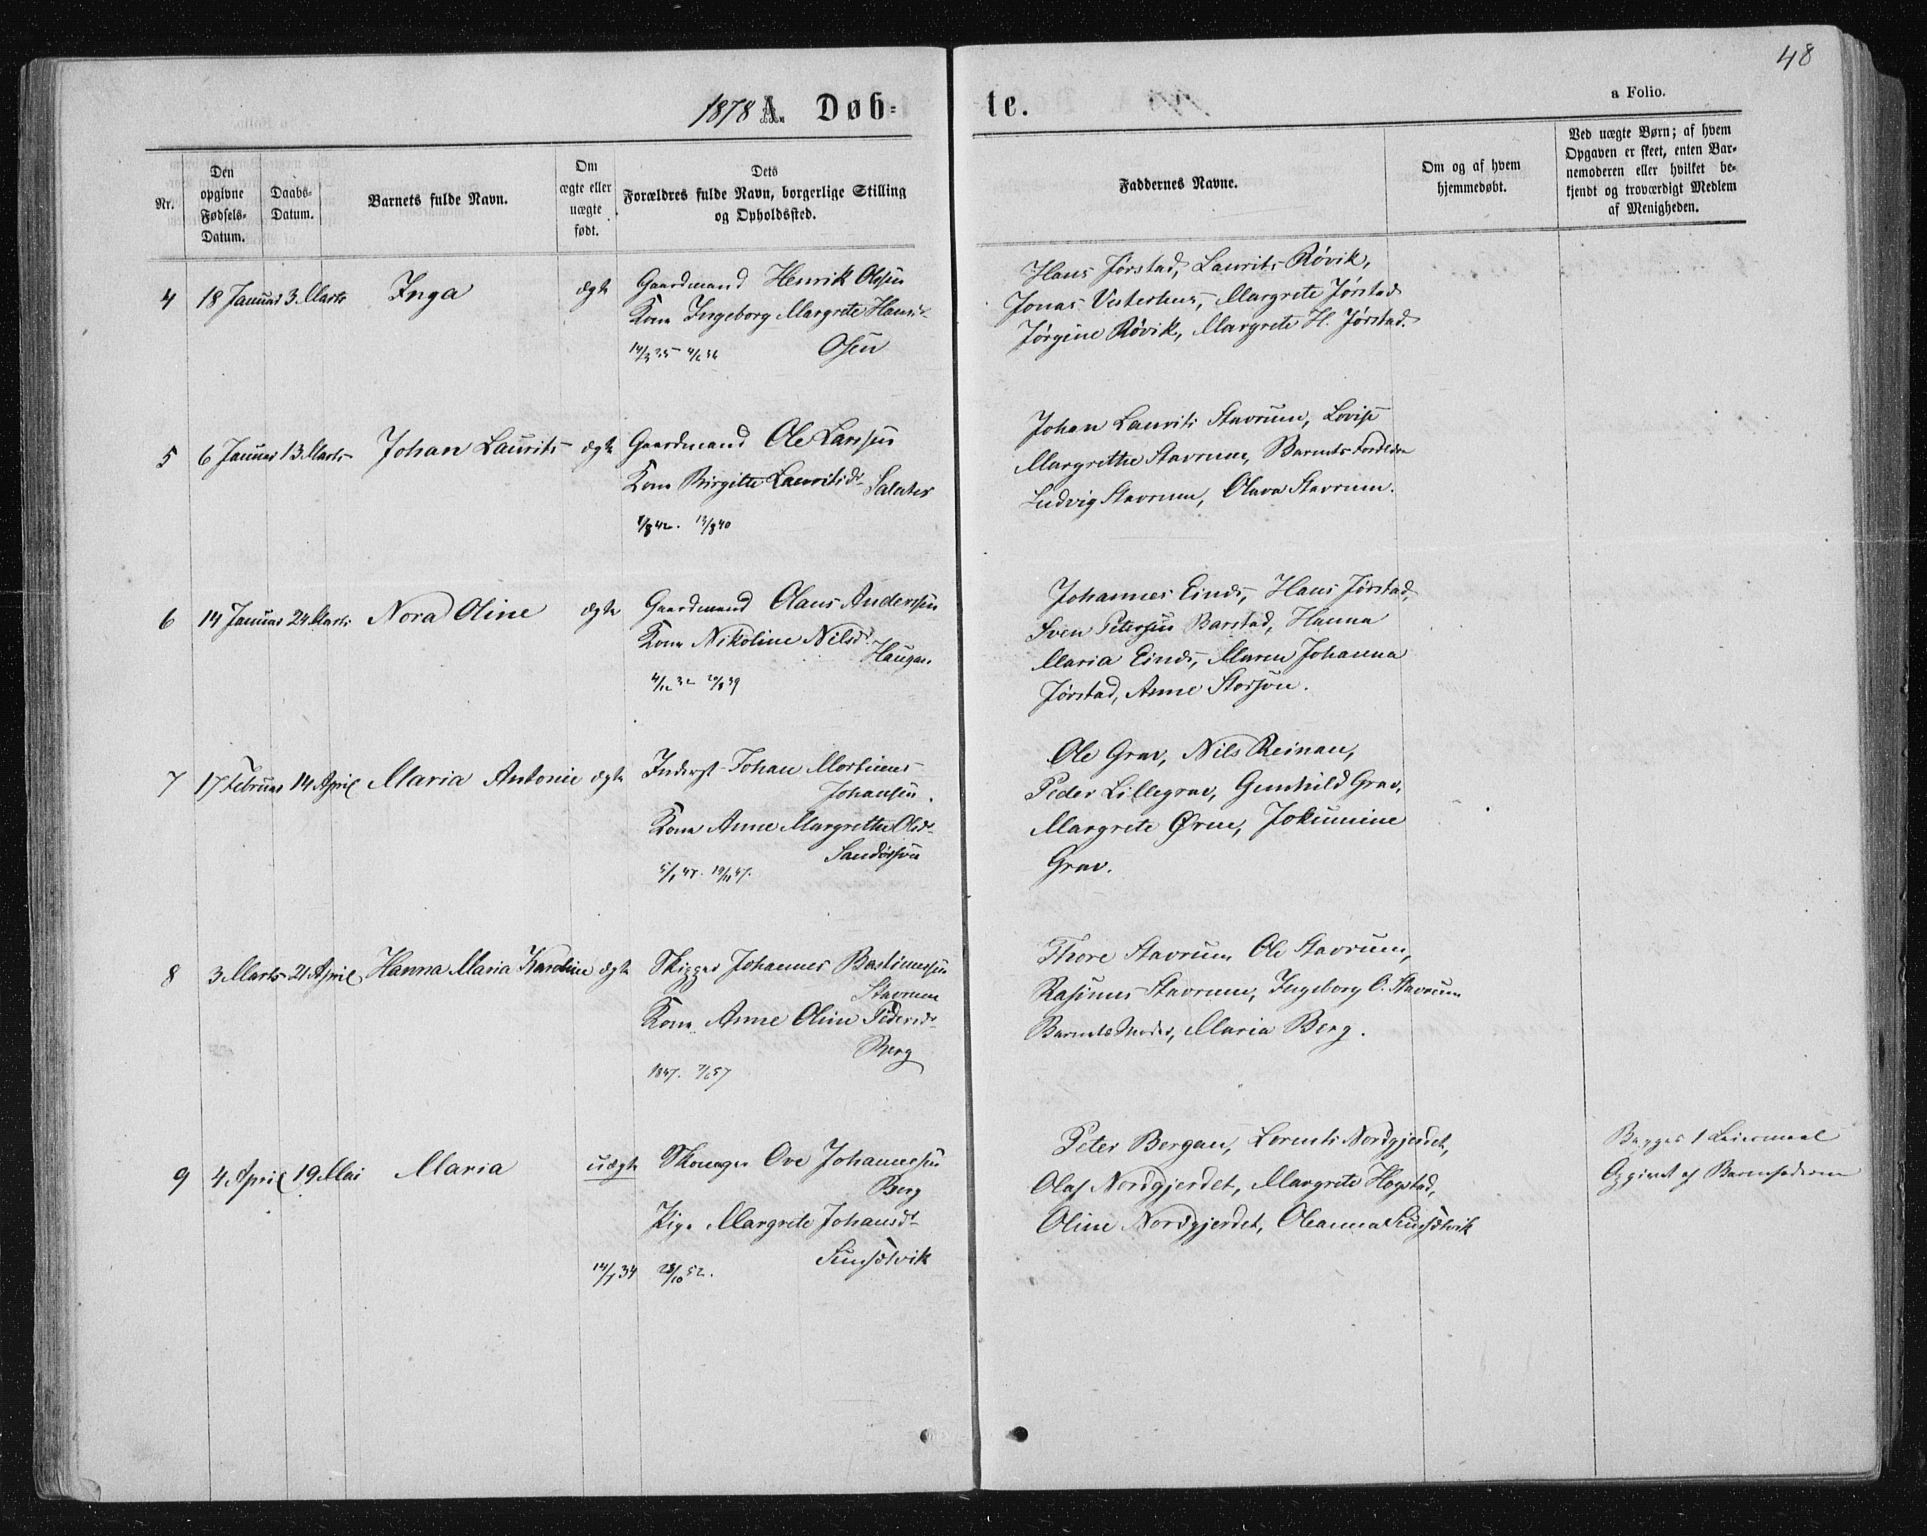 48
1878 A. Døb-
te.
a Folio.
Nr.
Den
opgivne
Fødsels-
Datum.
Daabs-
Datum.
Barnets fulde Navn.
Om
ægte eller
uægte
født.
Dets
Forældres fulde Navn, borgerlige Stilling
og Opholdssted.
Faddernes Navne.
Om og af hvem
hjemmedøbt.
Ved uægte Børn; af hvem
Opgaven er skeet, enten Bar-
nemoderen eller hvilket be-
kjendt og troværdigt Medlem
af Menigheden.
4 18 Januar 3. Marts Inga ægte Gaardmand Henrik Olsen
Kone Ingeborg Margrete Hansd.
Osen
Hans Jørstad, Laurits Røvik,
Jonas Vesterhus, Margrete Jørstad
Jørgine Røvik, Margrete H. Jørstad.
5 6 Januar 13 Marts Johan Laurits ægte Gaardmand Ole Larssen
Kone Birgitte Lauritsd.
Johan Laurits Stavrum, Lovise
Margrethe Stavrum, Barnets Forældre
Ludvig Stavrum, Olava Stavrum.
6 14 Januar 24 Marts Nora Oline ægte Gaardmand Olaus Anderssen
Kone Nikoline Nilsd.
Haugan
Johannes Einds, Hans Jørstad,
Sven Peterssen Barstad, Hanna
Maria Einds, Maren Johanna
Jørstad, Anne Storson.
7 17 Februar 14 April Maria Antonie ægte Inderst Johan Martinus
Johansen.
Kone Anne Margrethe Olsd.
Ole Grav, Nils Reinan,
Peder Lillegrav, Gunhild Grav,
Margrete Ørin, Jokumine
Grav.
8 3 Marts 21 April Hanna Maria Karoline ægte Johannes
Stavrum
Kone Anne Oline Pedersd.
Berg
1847.
Thore Stavrum, Ole Stavrum,
Rasmus Stavrum, Ingeborg O. Stavrum
Barnets Moder, Maria Berg.
9 4 April 19 Mai Maria uægte Skomager Ove Johannessen
Berg
Pige Margrete Johansd.
Peter Bergan, Lorents Nordgjerdet,
Olaf Nordgjerdet, Margrete Hogstad,
Oline Nordgjerdet, Oleanna
Begges 1 Leiermaal
Opgivet af Barnefaderen